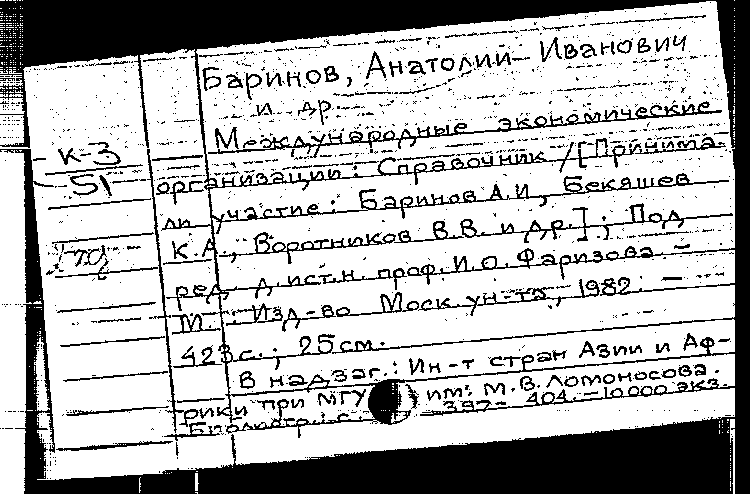 Баринов, Анатолий Иванович
и др.
Международные экономические
К-3
51
организации: Справочник /[Принима-
ли участие: Баринов А.И, Бекяшев
К.А., Воротников В.В. и др.]; Под
ред. д. ист.н. проф. И.О. Фаризова. -
М.: Изд-во Моск. ун-та, 1982. -
423с.; 25см.
В надзаг.: Ин-т стран Азии и Аф-
рики при МГУ им. М.В. Ломоносова.
Библиогр.: с. 397- 404. -10000 экз.